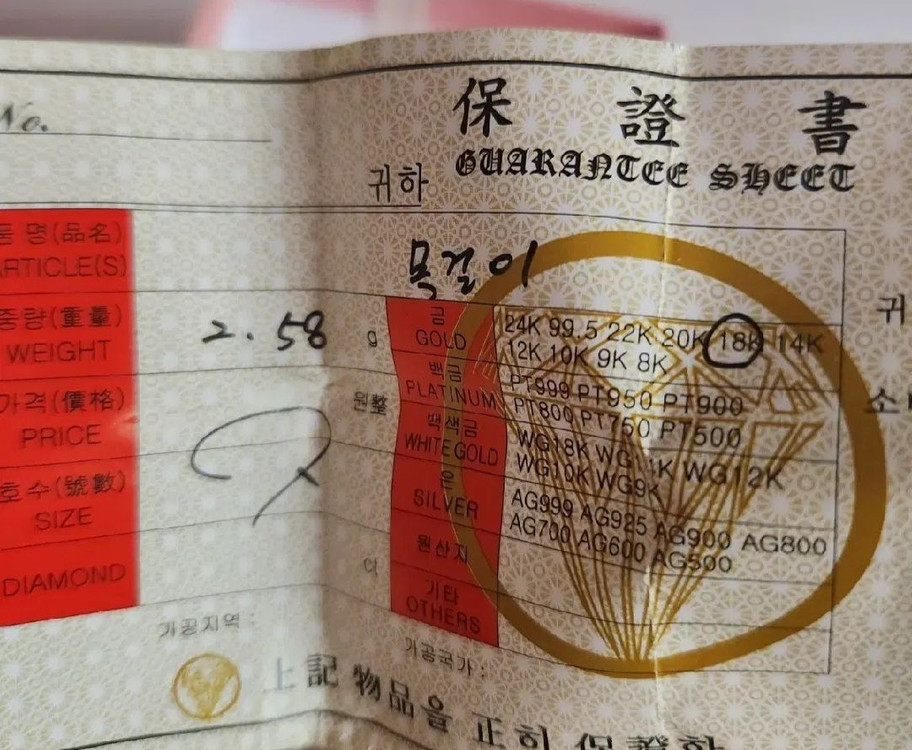 No.
保 證 書
GUARANTEE SHEET
귀하
명(品名)
ARTICLE(S)
목걸이
중량(重量)
WEIGHT
2.58 g
가격(價格)
PRICE
원整
호수(號數)
SIZE
DIAMOND
금
GOLD
24K 99.5 22K 20K 18K 14K
12K 10K 9K 8K
백금
PLATINUM
PT999 PT950 PT900
PT800 PT750 PT500
백색금
WHITE GOLD
WG18K WG14K WG12K
WG10K WG9K
은
SILVER
AG999 AG925 AG900 AG800
AG700 AG600 AG500
원산지
기타
OTHERS
귀
가공지역 :
가공국가 :
上記 物品을 正히 保證함